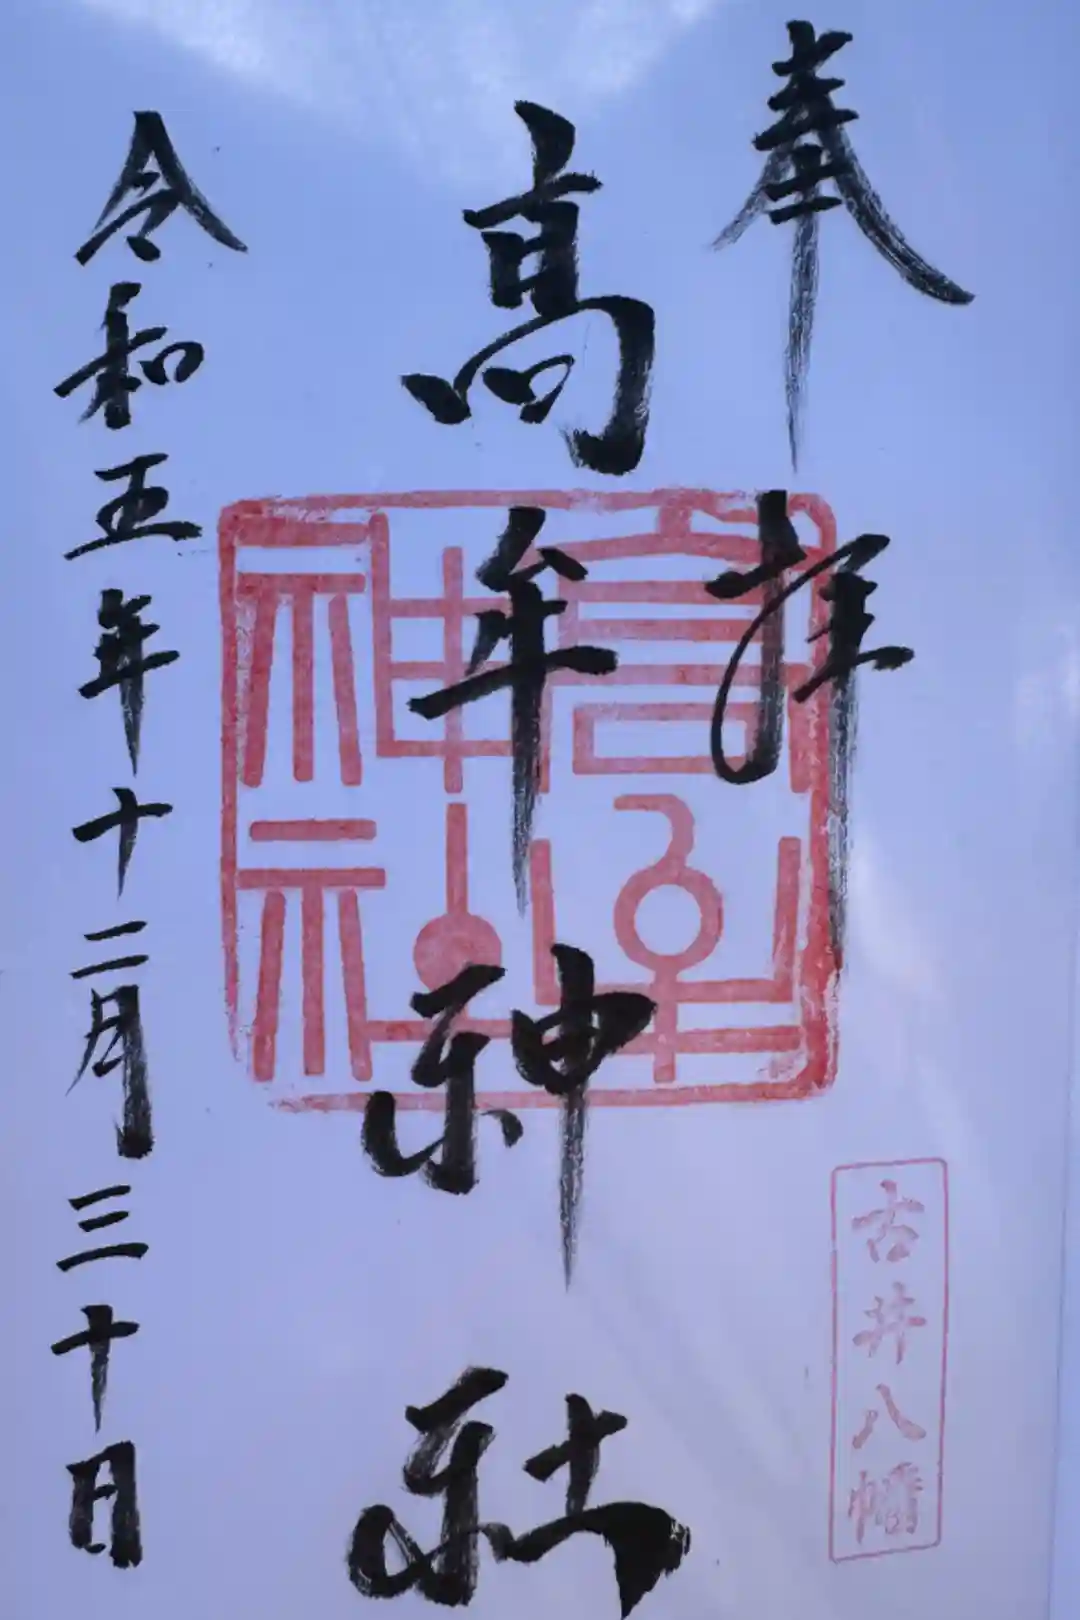 奉拝
古井八幡
高牟神社
高牟神社
令和五年十二月三十日